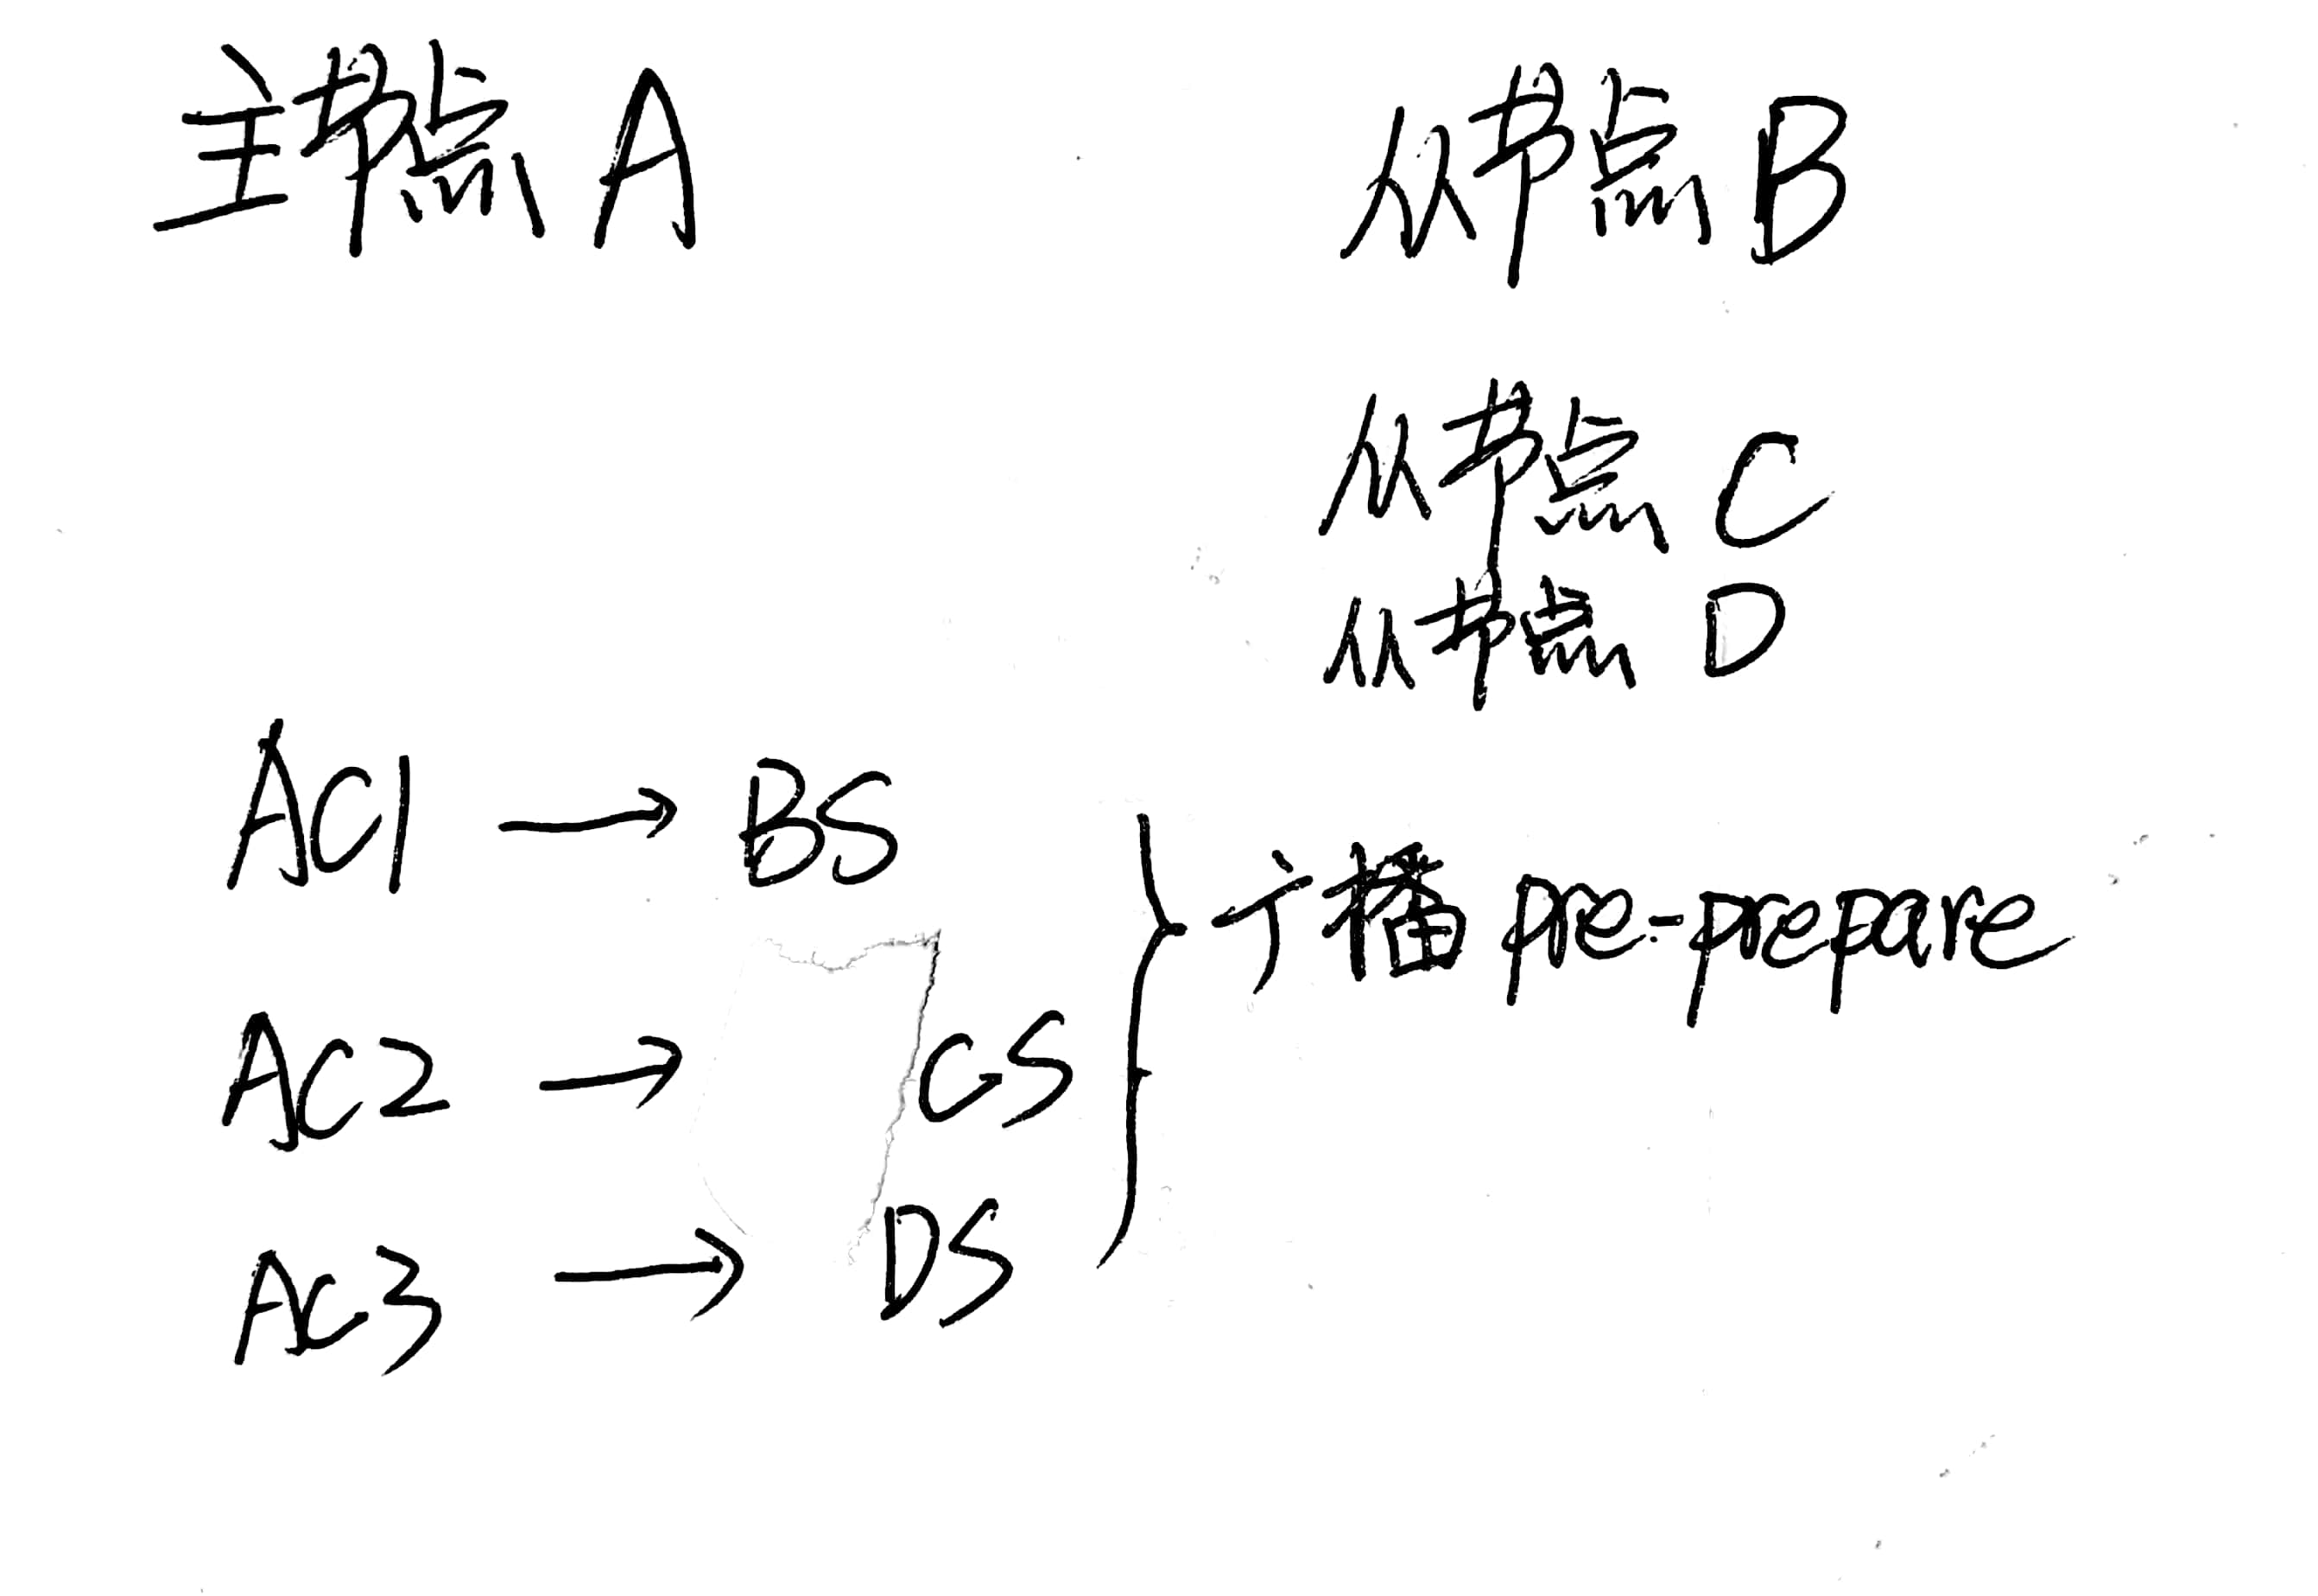 主节点 A
从节点 B
从节点 C
从节点 D
AC1 → BS
AC2 → CS
AC3 → DS
广播 pre-prepare